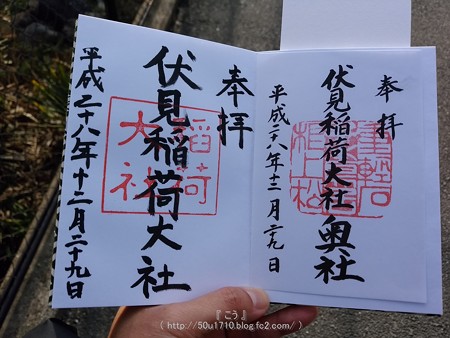 奉拝
伏見稲荷大社奥社
平成二十八年十二月二十九日
奉拝
伏見稲荷大社
稲荷
大社
平成二十八年十二月二十九日
『 こう 』
( http://50u1710.blog.fc2.com/ )